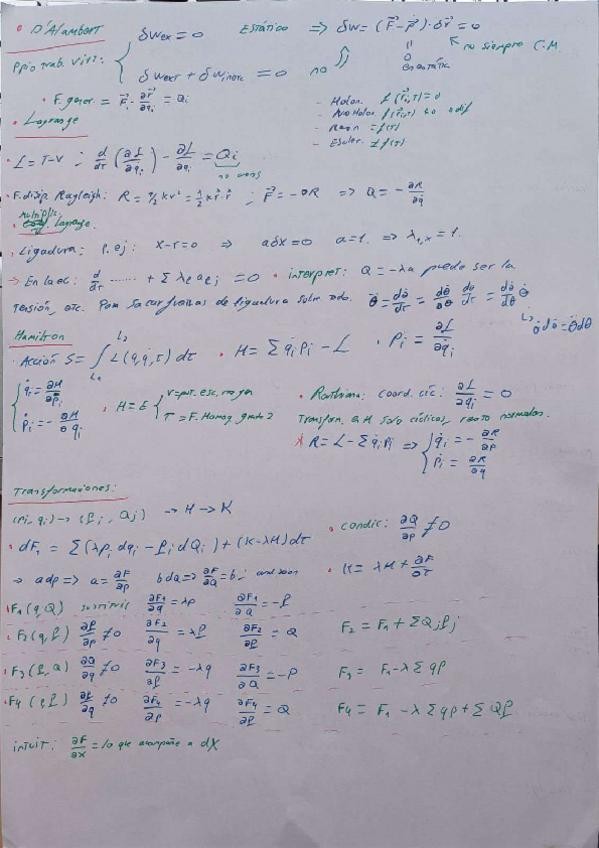 • D'Alambert
Ppio trab. virt: { δWex = 0 Estático ⇒ δW = (F⃗ - ṗ⃗)·δr⃗ = 0
δWext + δWinerc = 0 no = 0 no siempre C.M.
• F. gener = F⃗i · ∂r⃗/∂qi = Qi
- Holon. f(r⃗i,t) = 0
- No Holon. f(r⃗i,t) ó dif
- Reon = f(t)
- Escler. ≠ f(t)
• Lagrange
• L = T-V ; d/dt (∂L/∂q̇i) - ∂L/∂qi = Qi
no cons
• F. disip. Rayleigh: R = 1/2 kv² = 1/2 k ṙ·ṙ ; F⃗ = -∂R ⇒ Q = -∂R/∂q̇
• Multiplic. Lagrange.
• Ligadura; P. ej: x-r=0 ⇒ aδx=0 a=1. ⇒ λ1,x = 1.
→ En la ec: d/dt ...... + Σ λe aej = 0 • interpret: Q = -λa puede ser la
tensión, etc. Para sacar fuerzas de ligadura sobre todo. θ̈ = dθ̇/dt = dθ̇/dθ dθ/dt = dθ̇/dθ θ̇
↳ θ̇dθ̇ = θ̈dθ
Hamilton
• Acción S = ∫ L(q,q̇,t) dt • H = Σ q̇i Pi - L • Pi = ∂L/∂q̇i
{ q̇i = ∂H/∂pi
ṗi = -∂H/∂qi
• H = E { V = pot. esc. no gen
T = F. Homog. grado 2
• Routhiana: coord. cíc: ∂L/∂qi = 0
Transfom. en H solo cíclicas, resto normales.
* R = L - Σ q̇i Pi ⇒ { q̇i = -∂R/∂P
ṗi = ∂R/∂q
Transformaciones:
(Pi, qi) → (Pj, Qj) → H → K
• condic: ∂Q/∂p ≠ 0
• dF1 = Σ(λpi dqi - Pi dQi) + (K-λH)dt
→ adp ⇒ a = ∂F/∂p bdQ ⇒ ∂F/∂Q = b;
• K = λH + ∂F/∂t
• F1 (q,Q) ∂F1/∂q = λp ∂F1/∂Q = -P
• F2 (q,P) ∂P/∂p ≠ 0 ∂F2/∂q = λp ∂F2/∂P = Q F2 = F1 + Σ Qj Pj
• F3 (p,Q) ∂Q/∂q ≠ 0 ∂F3/∂p = -λq ∂F3/∂Q = -P F3 = F1 - λ Σ qp
• F4 (p,P) ∂P/∂q ≠ 0 ∂F4/∂p = -λq ∂F4/∂P = Q F4 = F1 - λ Σ qp + Σ QP
intuit: ∂F/∂x = lo que acompañe a dX